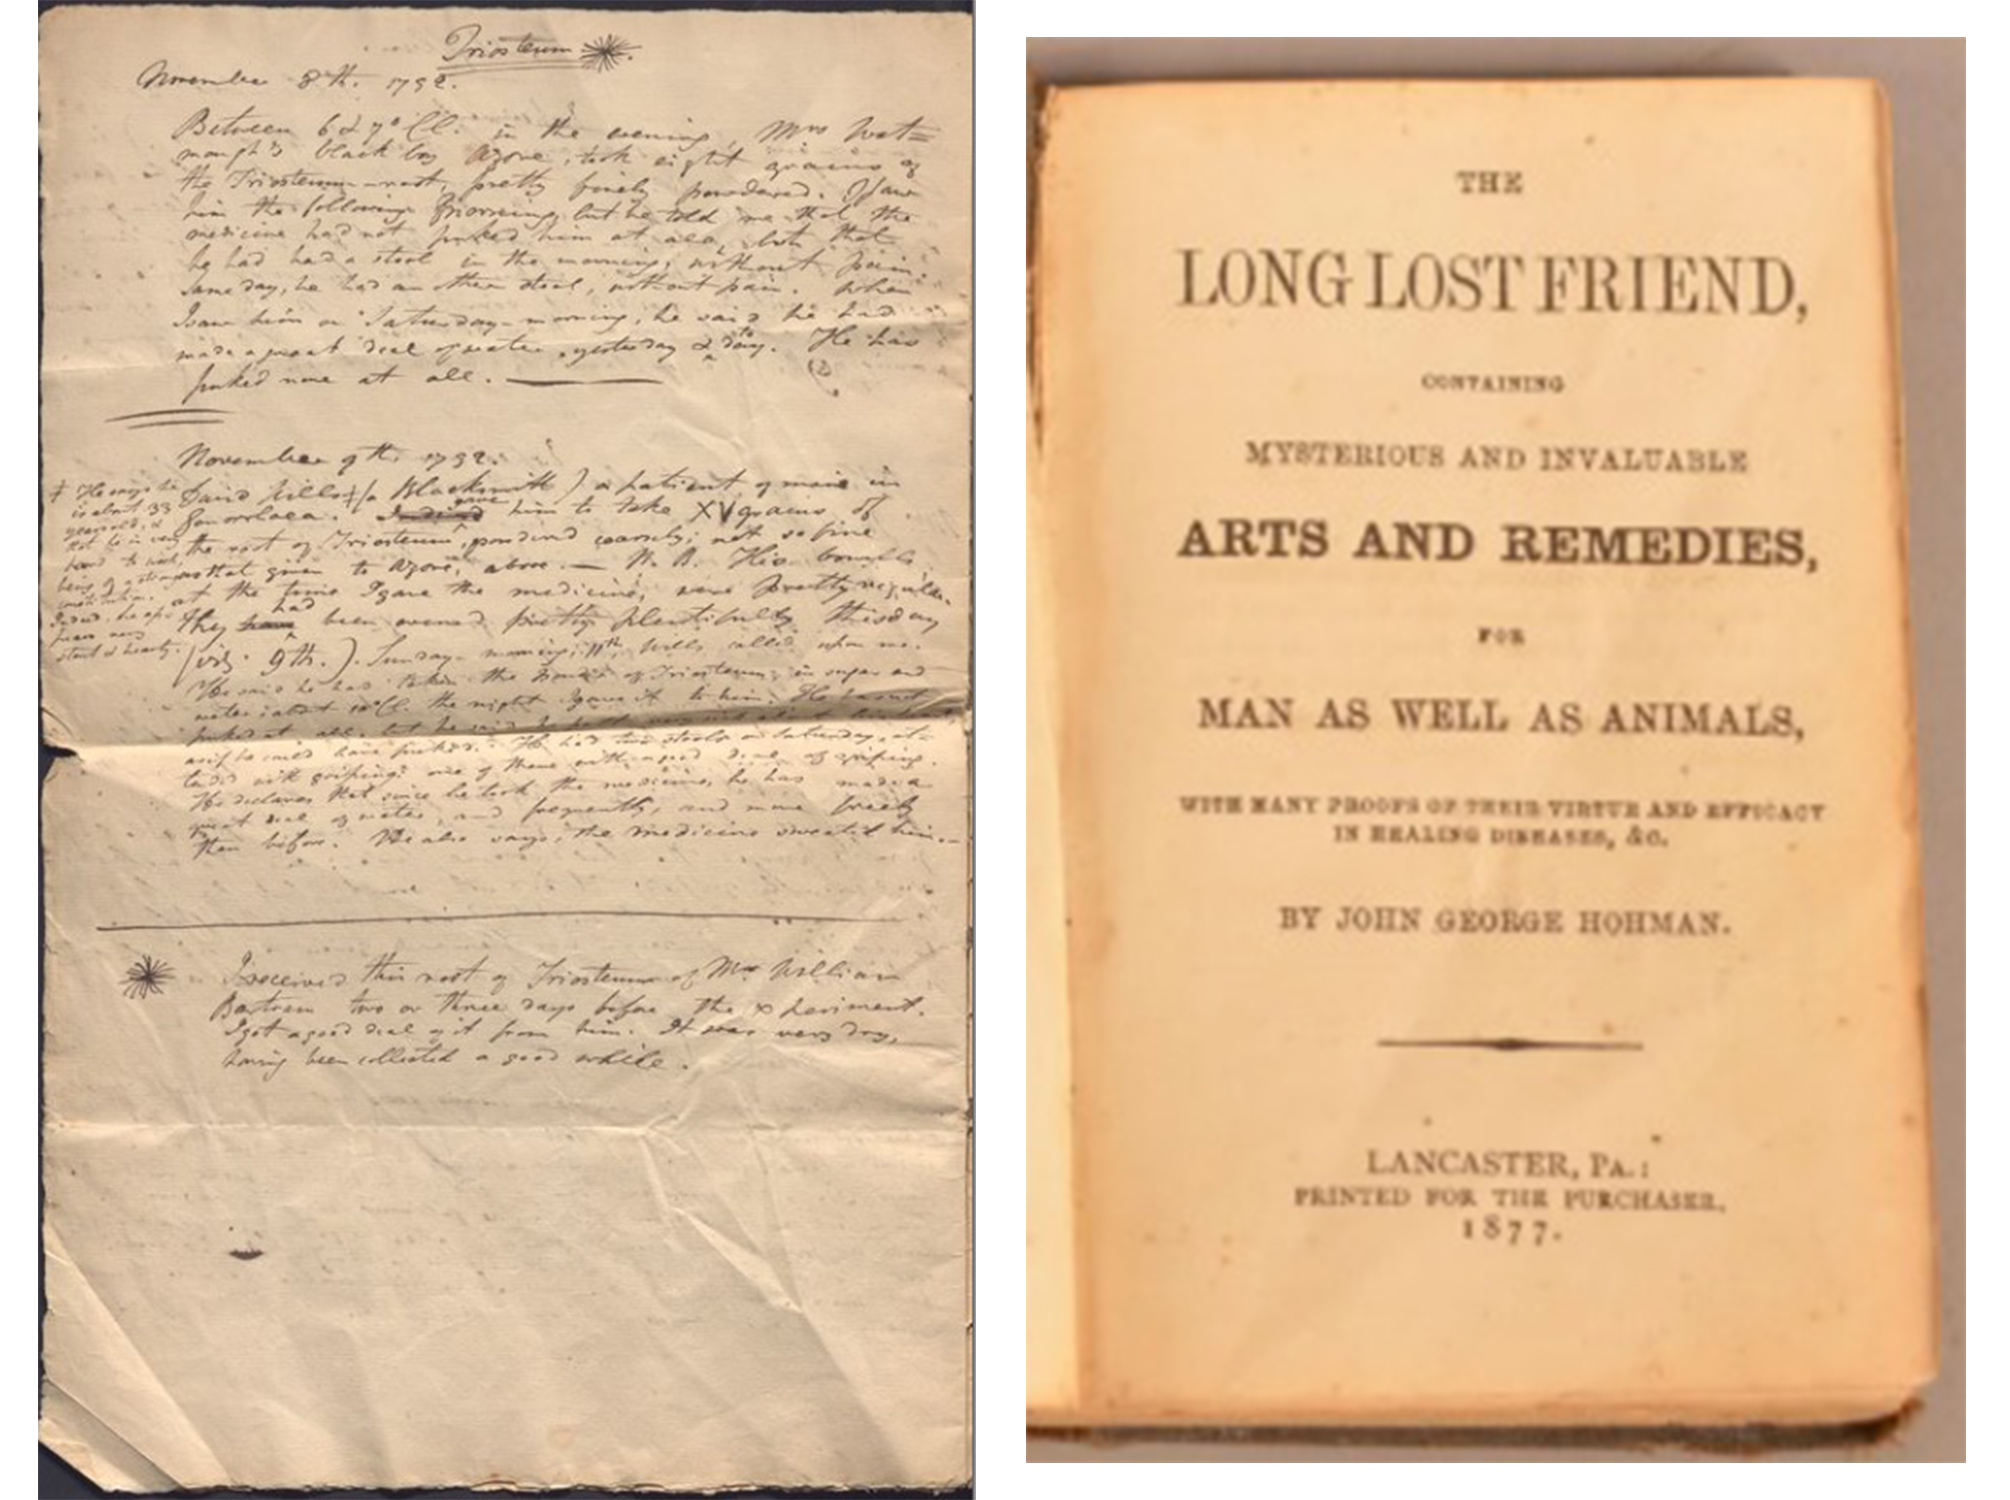 Triosteum
November 8th. 1792.
Between 6 & 7 o'Cl. in the evening, Mrs Wat=
mough's black boy Azore, took eight grains of
the Triosteum-root, pretty finely powdered. I saw
him the following morning, but he told me that the
medicine had not puked him at all, but that
he had had a stool in the morning, without pain.
Same day, he had an other stool, without pain. When
I saw him on Saturday-morning, he said he had
made a great deal of water, yesterday & to day. He has
puked none at all.
November 9th. 1792.
David Wills ‡ (a Blacksmith) a patient of mine in
Gonorrhaea. I gave him to take XV grains of
the root of Triosteum, powdered coarsely; not so fine
as that given to Azore, above. — N. B. His bowels,
at the time I gave the medicine, were pretty regular.
They had been opened pretty plentifully this day
(viz. 9th.). Sunday-morning, 11th, Wills called upon me.
He said he had taken the powder of Triosteum, in sugar and
water, about 10 o'Cl. the night I gave it to him. He has not
puked at all, but he said he felt very sick at
as if he could have puked. He had two stools on Saturday, at=
tended with griping: one of them with a good deal of griping.
He declares that since he took the medicine, he has made a
great deal of water, and frequently, and more freely
than before. He also says, the medicine sweated him.—
‡ He says he
is about 33
years old, &
that he is very
hard to work,
being of a strong
constitution.
Indeed, he ap=
pears very
stout & hearty.
I received this root of Triosteum of Mr William
Bartram two or three days before the experiment.
I got a good deal of it from him. It was very dry,
having been collected a good while.
THE
LONG LOST FRIEND,
CONTAINING
MYSTERIOUS AND INVALUABLE
ARTS AND REMEDIES,
FOR
MAN AS WELL AS ANIMALS,
WITH MANY PROOFS OF THEIR VIRTUE AND EFFICACY
IN HEALING DISEASES, &C.
BY JOHN GEORGE HOHMAN.
LANCASTER, PA.:
PRINTED FOR THE PURCHASER,
1877.